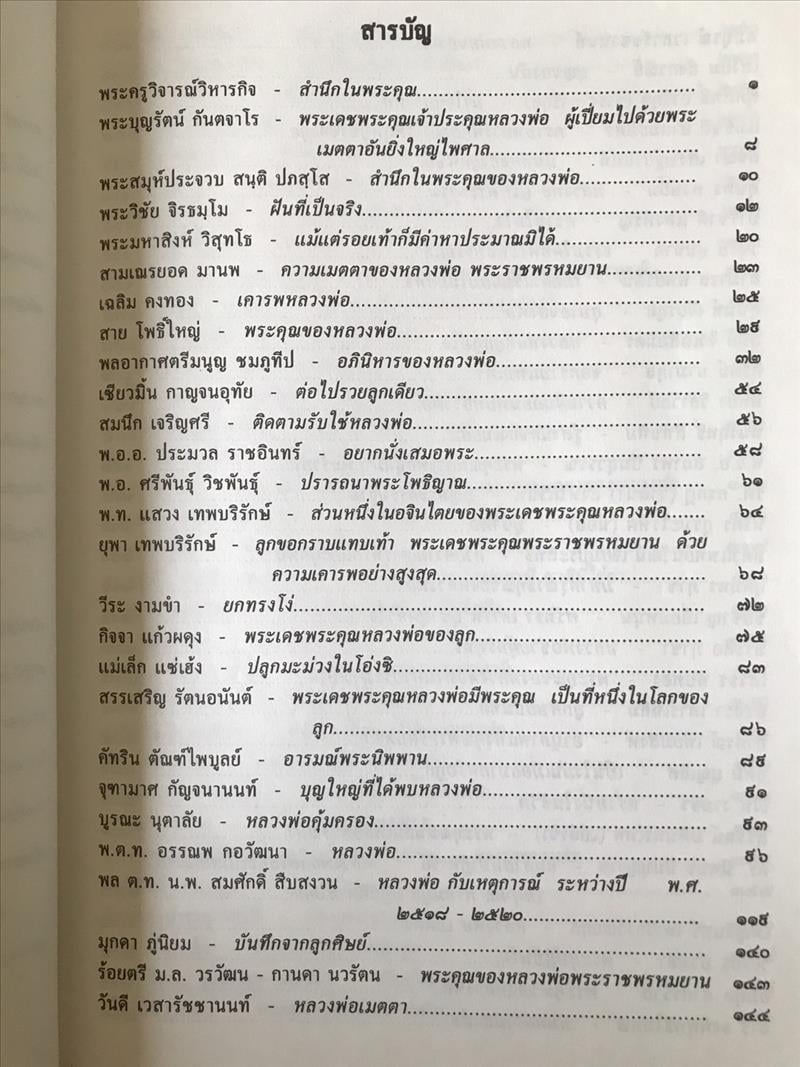 สารบัญ
พระครูวิจารณ์วิหารกิจ - สำนึกในพระคุณ........................................ ๑
พระบุญรัตน์ กันตจาโร - พระเดชพระคุณเจ้าประคุณหลวงพ่อ ผู้เปี่ยมไปด้วยพระ
เมตตาอันยิ่งใหญ่ไพศาล.............................. ๘
พระสมุห์ประจวบ สนฺติ ปภสฺโส - สำนึกในพระคุณของหลวงพ่อ................. ๑๐
พระวิชัย จิรธมฺโม - ฝันที่เป็นจริง................................................ ๑๒
พระมหาสิงห์ วิสุทโธ - แม้แต่รอยเท้าก็มีค่าหาประมาณมิได้..................... ๒๐
สามเณรยอด มานพ - ความเมตตาของหลวงพ่อ พระราชพรหมยาน.............. ๒๓
เฉลิม คงทอง - เคารพหลวงพ่อ.................................................. ๒๕
สาย โพธิ์ใหญ่ - พระคุณของหลวงพ่อ............................................ ๒๙
พลอากาศตรีมนูญ ชมภูทีป - อภินิหารของหลวงพ่อ............................. ๓๒
เชียวมิ้น กาญจนอุทัย - ต่อไปรวยลูกเดียว........................................ ๕๔
สมนึก เจริญศรี - ติดตามรับใช้หลวงพ่อ......................................... ๕๖
พ.อ.อ. ประมวล ราชอินทร์ - อยากนั่งเสมอพระ................................ ๕๘
พ.อ. ศรีพันธุ์ วิชพันธุ์ - ปรารถนาพระโพธิญาณ.................................. ๖๑
พ.ท. แสวง เทพบริรักษ์ - ส่วนหนึ่งในอจินไตยของพระเดชพระคุณหลวงพ่อ....... ๖๔
ยุพา เทพบริรักษ์ - ลูกขอกราบแทบเท้า พระเดชพระคุณพระราชพรหมยาน ด้วย
ความเคารพอย่างสูงสุด....................................... ๖๘
วีระ งามขำ - ยกทรงโง่.......................................................... ๗๒
กิจจา แก้วผดุง - พระเดชพระคุณหลวงพ่อของลูก................................ ๗๕
แม่เล็ก แซ่เฮ้ง - ปลูกมะม่วงในโอ่งซิ............................................ ๘๓
สรรเสริญ รัตนอนันต์ - พระเดชพระคุณหลวงพ่อมีพระคุณ เป็นที่หนึ่งในโลกของ
ลูก........................................................ ๘๖
คัทริน ตัณฑ์ไพบูลย์ - อารมณ์พระนิพพาน....................................... ๘๙
จุฑามาศ กัญจนานนท์ - บุญใหญ่ที่ได้พบหลวงพ่อ................................ ๙๑
บูรณะ นุตาลัย - หลวงพ่อคุ้มครอง............................................... ๙๓
พ.ต.ท. อรรณพ กอวัฒนา - หลวงพ่อ............................................ ๙๖
พล ต.ท. น.พ. สมศักดิ์ สืบสงวน - หลวงพ่อ กับเหตุการณ์ ระหว่างปี พ.ศ.
๒๕๑๘ - ๒๕๒๐......................... ๑๑๙
มุกดา ภู่นิยม - บันทึกจากลูกศิษย์................................................ ๑๔๐
ร้อยตรี ม.ล. วรวัฒน - กานดา นวรัตน - พระคุณของหลวงพ่อพระราชพรหมยาน ๑๔๓
วันดี เวสารัชชานนท์ - หลวงพ่อเมตตา........................................... ๑๔๔